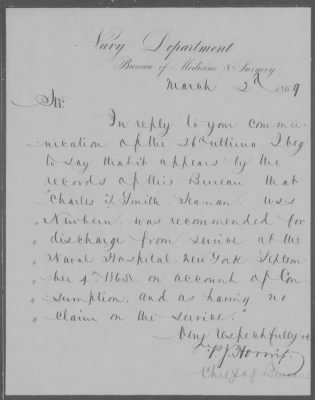 Navy Department
Bureau of Medicine & Surgery
March 2d 1869
Sir:
In reply to your commu-
nication of the 26th ultimo. I beg
to say that it appears by the
records of this Bureau that
"Charles F. Smith Seaman U.S.S.
" Newbern, was recommended for
" discharge from service at the
" Naval Hospital New York Septem-
" ber 4th 1868 on account of Con
" sumption, and as having no
" claim on the service."
Very respectfully
P. J. Horwitz
Chief of Bureau